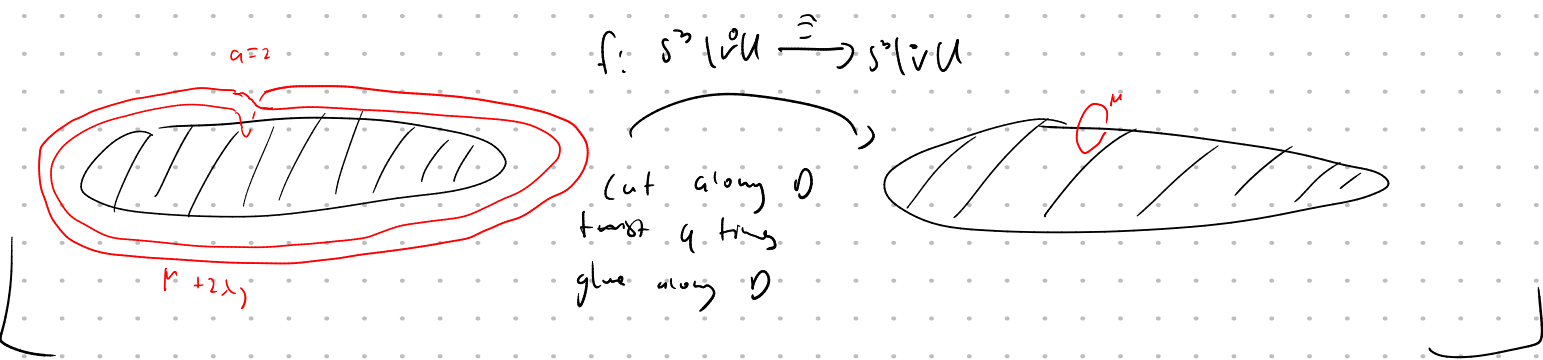 a=2
f: S³\ν̊U ≅→ S³\ν̊U
μ
cut along D
twist q times
glue along D
μ+2λ